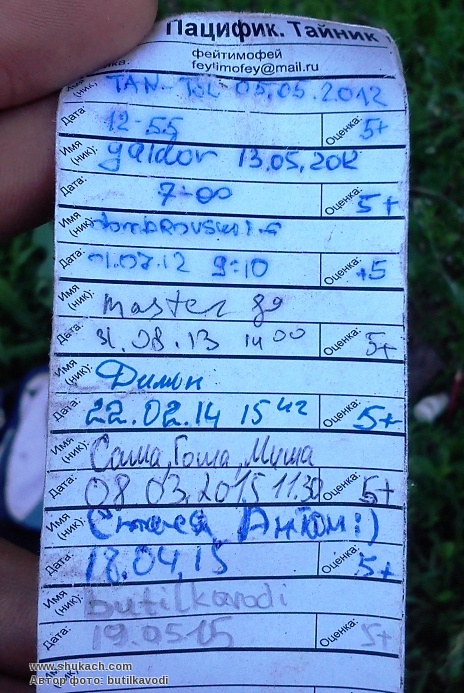 Пацифик. Тайник
фейтимофей
feytimofey@mail.ru
(ник): TAN 05.05.2012
Дата: 12-55 Оценка: 5+
Имя (ник): galdor 13.05.2012
Дата: 7-00 Оценка: 5+
Имя (ник):
Дата: 01.07.12 9:10 Оценка: +5
Имя (ник): master 89
Дата: 31.08.13 14 00 Оценка: 5+
Имя (ник): Димон
Дата: 22.02.14 15 42 Оценка: 5+
Имя (ник): Саша, Гоша, Миша
Дата: 08 03.2015 11.30 Оценка: 5+
Имя (ник): Антон :)
Дата: 18.04.15 Оценка: 5+
Имя (ник): butilkavodi
Дата: 19.0515 Оценка: 5+
Имя (ник):
www.shukach.com
Автор фото: butilkavodi